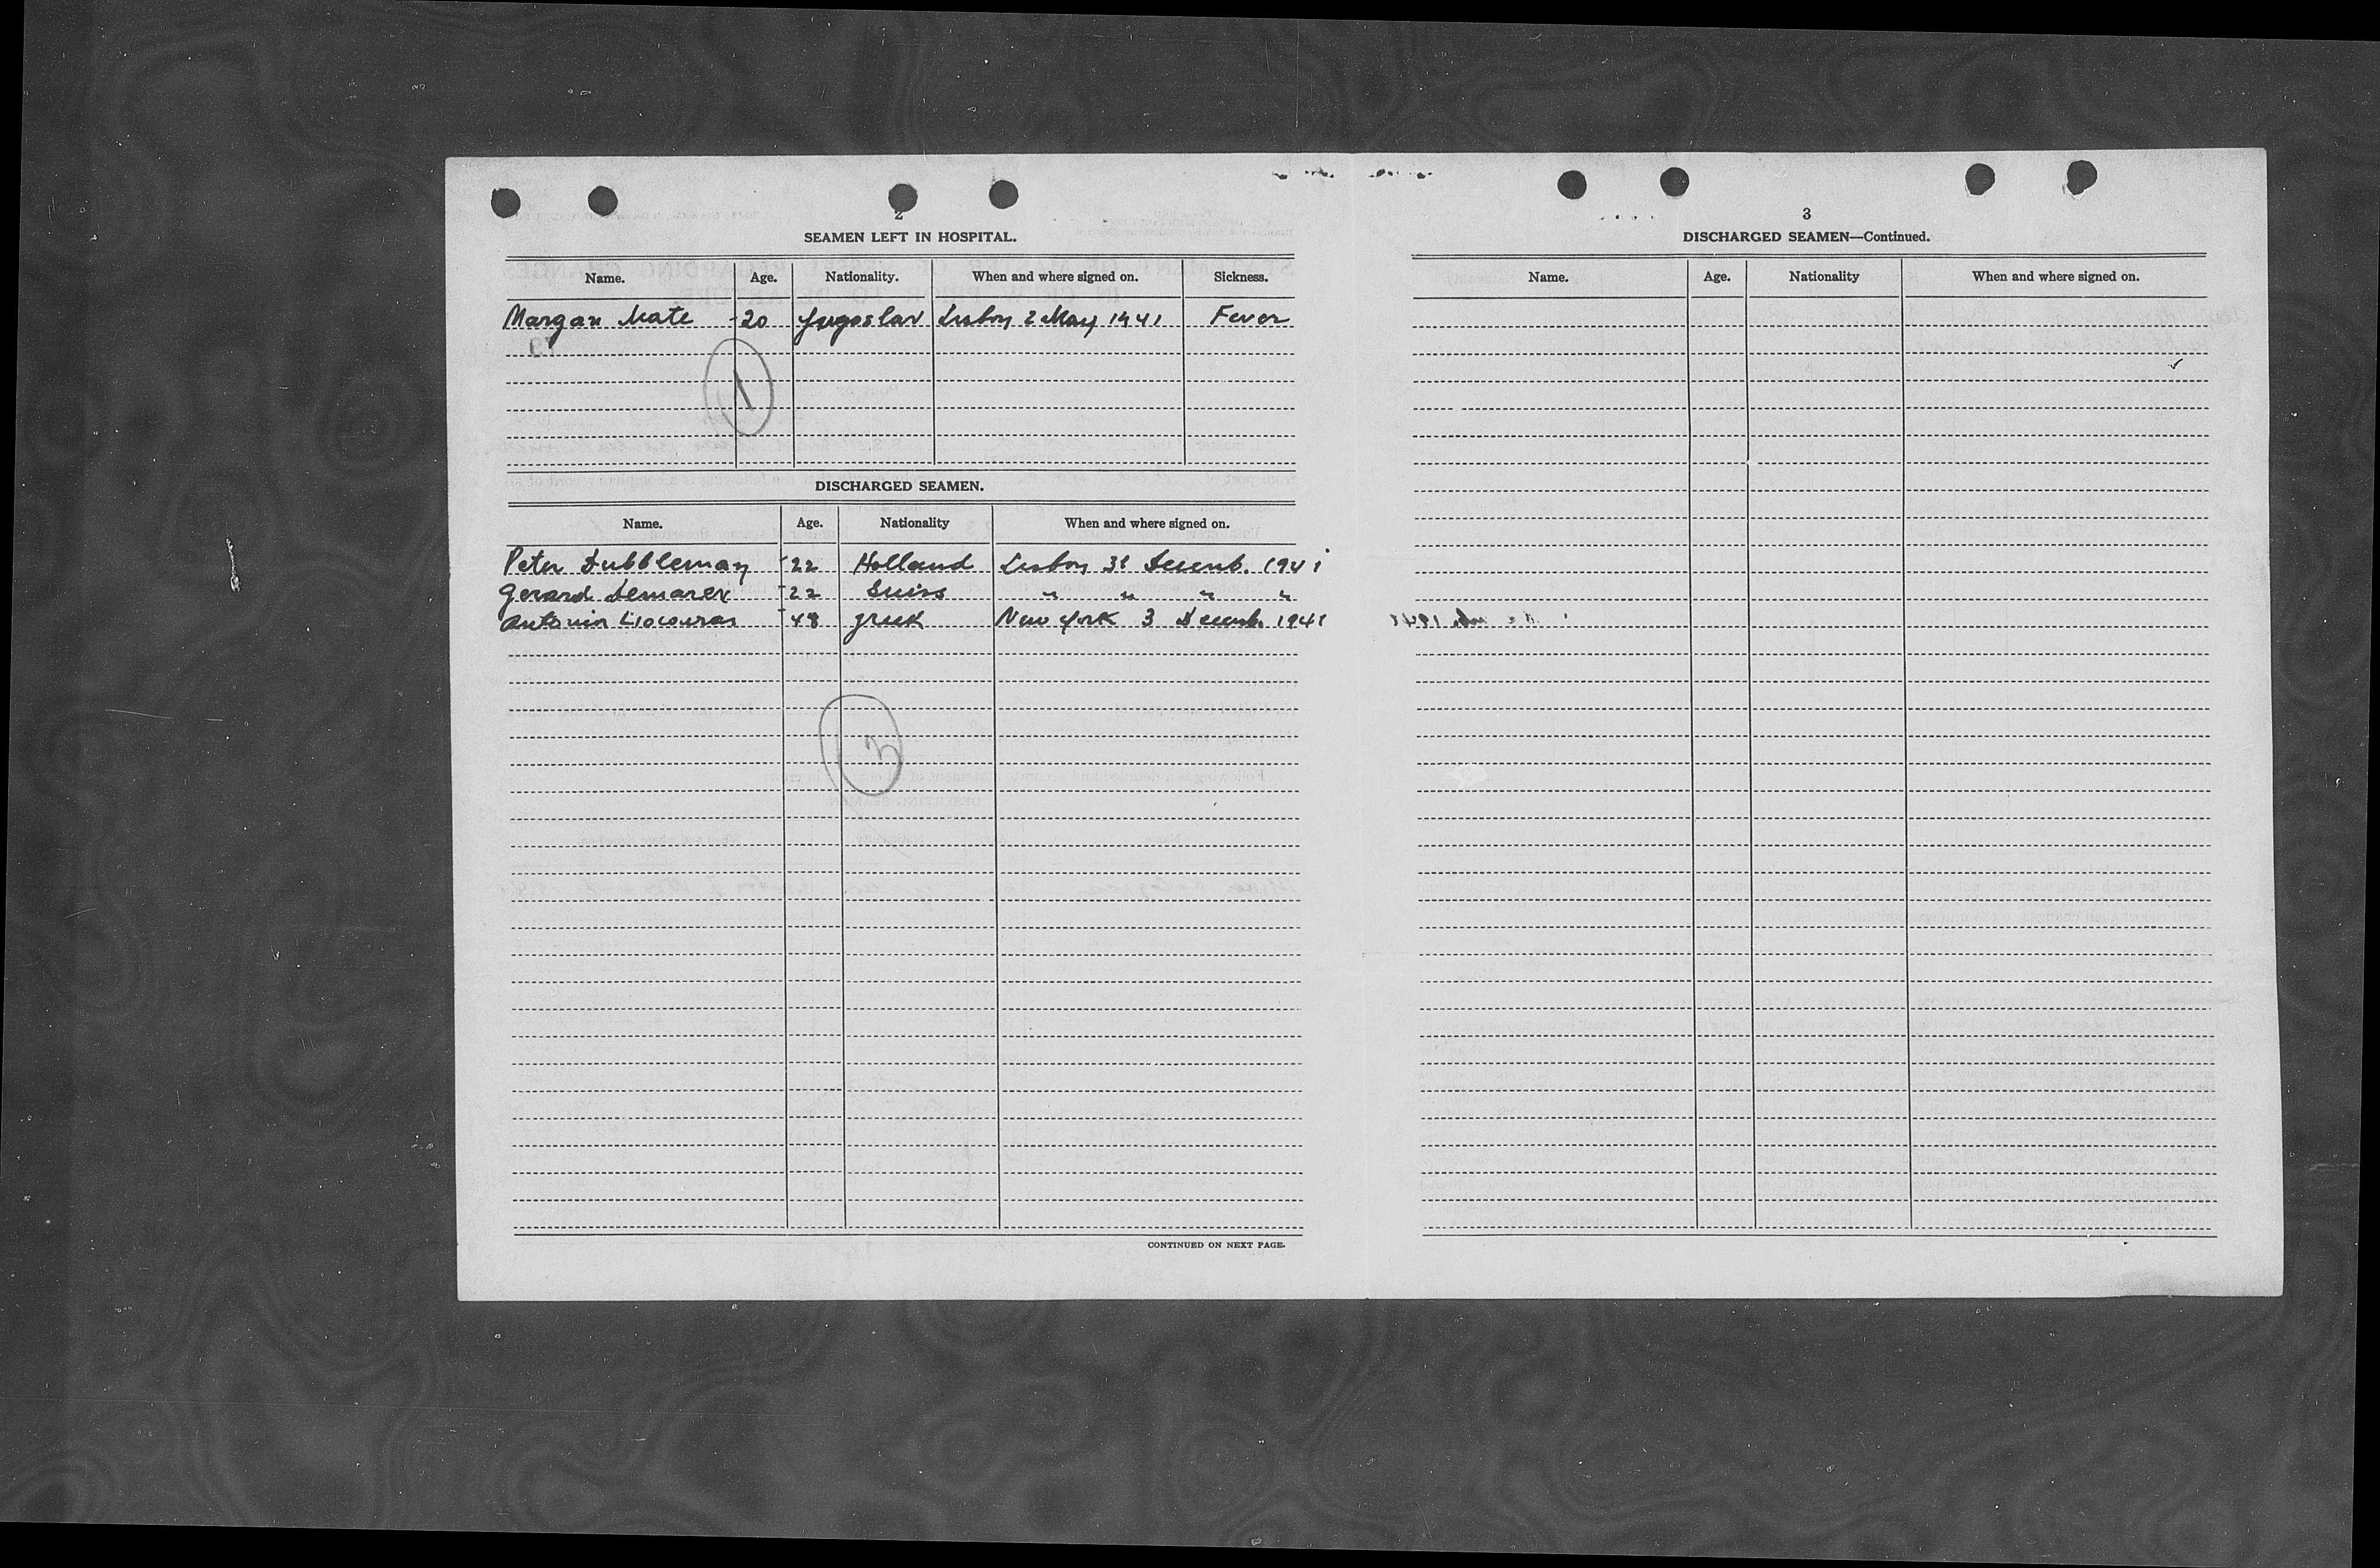 2
SEAMEN LEFT IN HOSPITAL.
Name. Age. Nationality. When and where signed on. Sickness.
Margan Mate 20 Yugoslav Lisbon 2 May 1941 Fever
1
DISCHARGED SEAMEN.
Name. Age. Nationality When and where signed on.
Peter Dubbleman 22 Holland Lisbon 31 Decemb. 1941
Gerard Demarex 22 Suiss " " " "
Antonin 48 greek New York 3 Decemb. 1941
3
CONTINUED ON NEXT PAGE.
3
DISCHARGED SEAMEN—Continued.
Name. Age. Nationality When and where signed on.